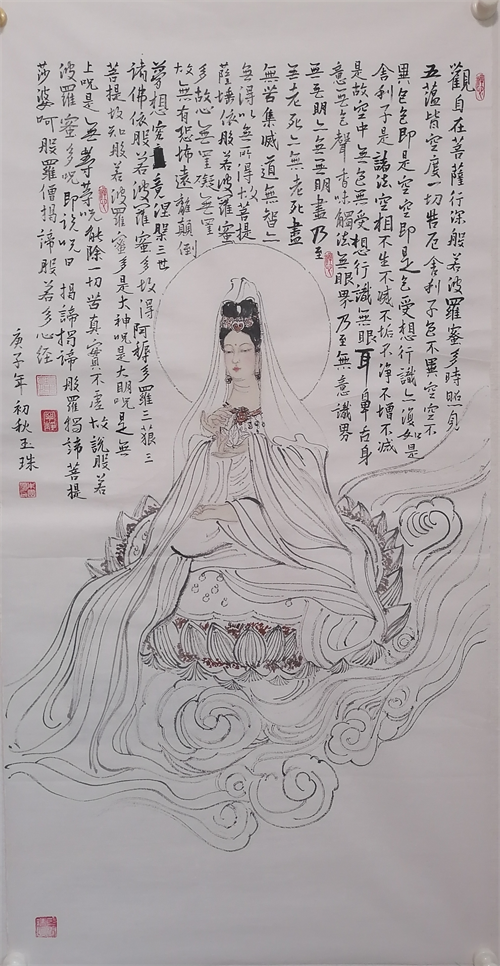 觀自在菩薩行深般若波羅蜜多時照見
五蘊皆空度一切苦厄舍利子色不異空空不
異色色即是空空即是色受想行識亦復如是
舍利子是諸法空相不生不滅不垢不淨不增不減
是故空中無色無受想行識無眼耳鼻舌身
意無色聲香味觸法無眼界乃至無意識界
無無明亦無無明盡乃至
無老死亦無老死盡
無苦集滅道無智亦
無得以無所得故菩提
薩埵依般若波羅蜜
多故心無罣礙無罣
故無有恐怖遠離顛倒
夢想究竟涅槃三世
諸佛依般若波羅蜜多故得阿耨多羅三藐三
菩提故知般若波羅蜜多是大神咒是大明咒是無
上咒是無等等咒能除一切苦真實不虛故說般若
波羅蜜多咒即說咒曰揭諦揭諦般羅揭諦菩提
莎婆呵般羅僧揭諦般若多心經
庚子年初秋玉珠